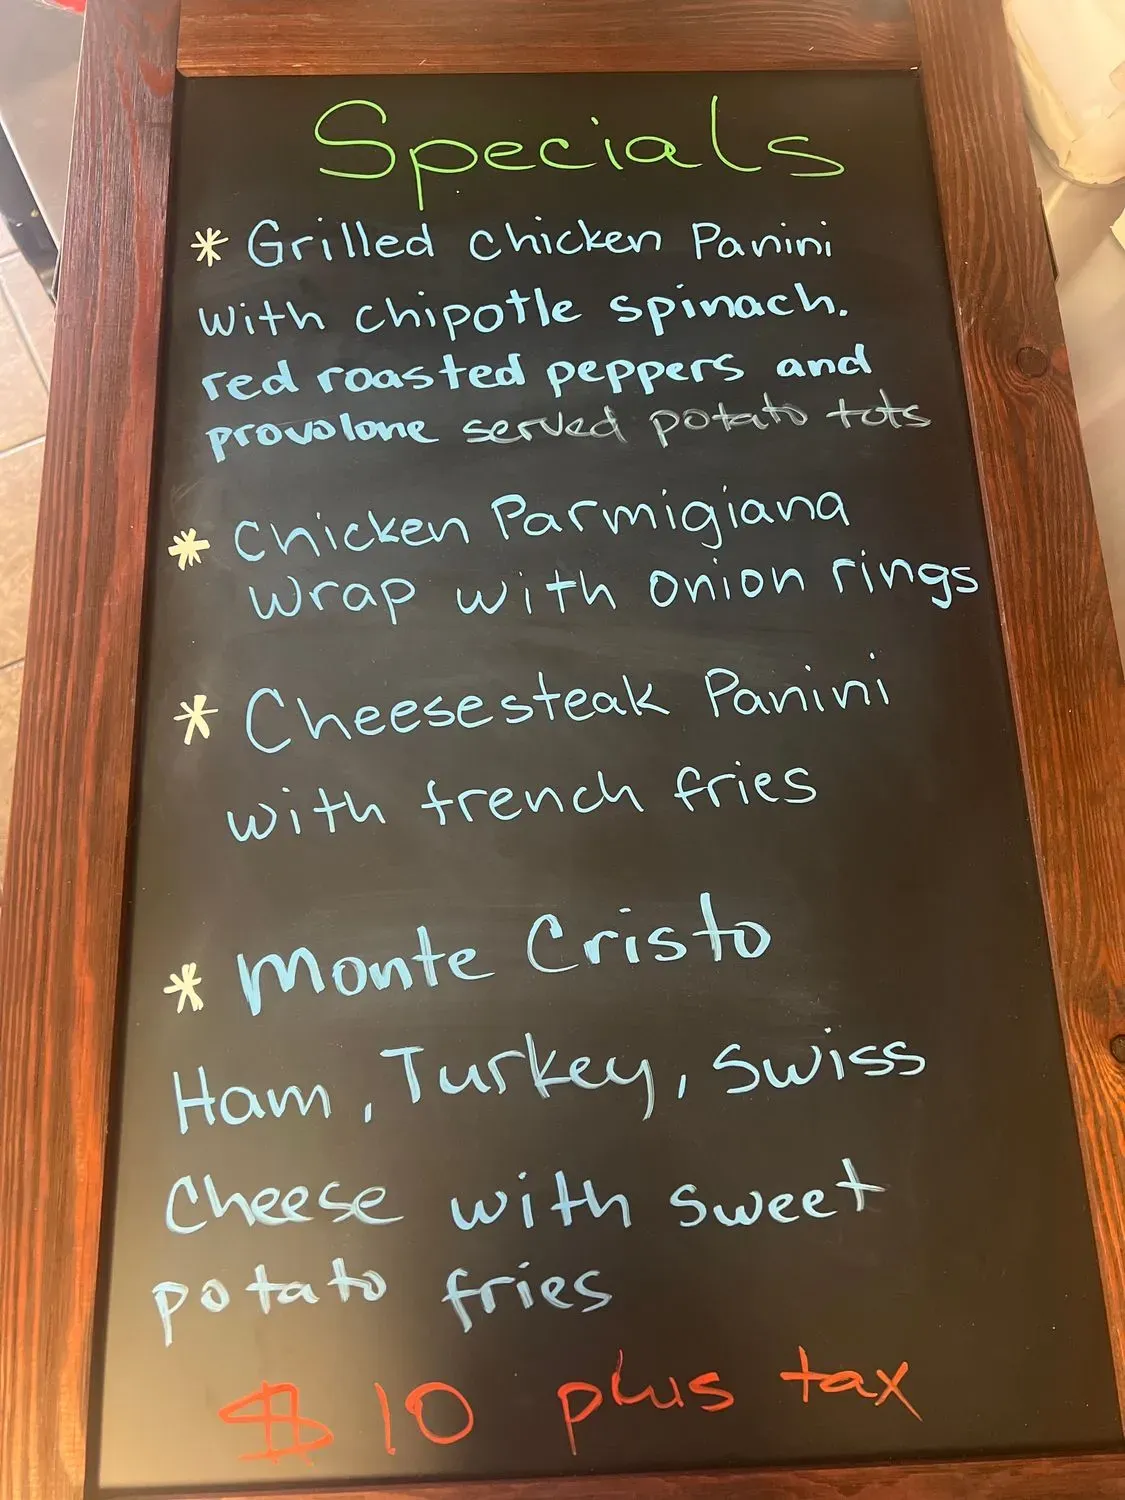 Specials
* Grilled chicken Panini
with chipotle spinach.
red roasted peppers and
provolone served potato tots
* Chicken Parmigiana
Wrap with onion rings
* Cheesesteak Panini
with french fries
* Monte Cristo
Ham, Turkey, Swiss
Cheese with sweet
potato fries
$10 plus tax